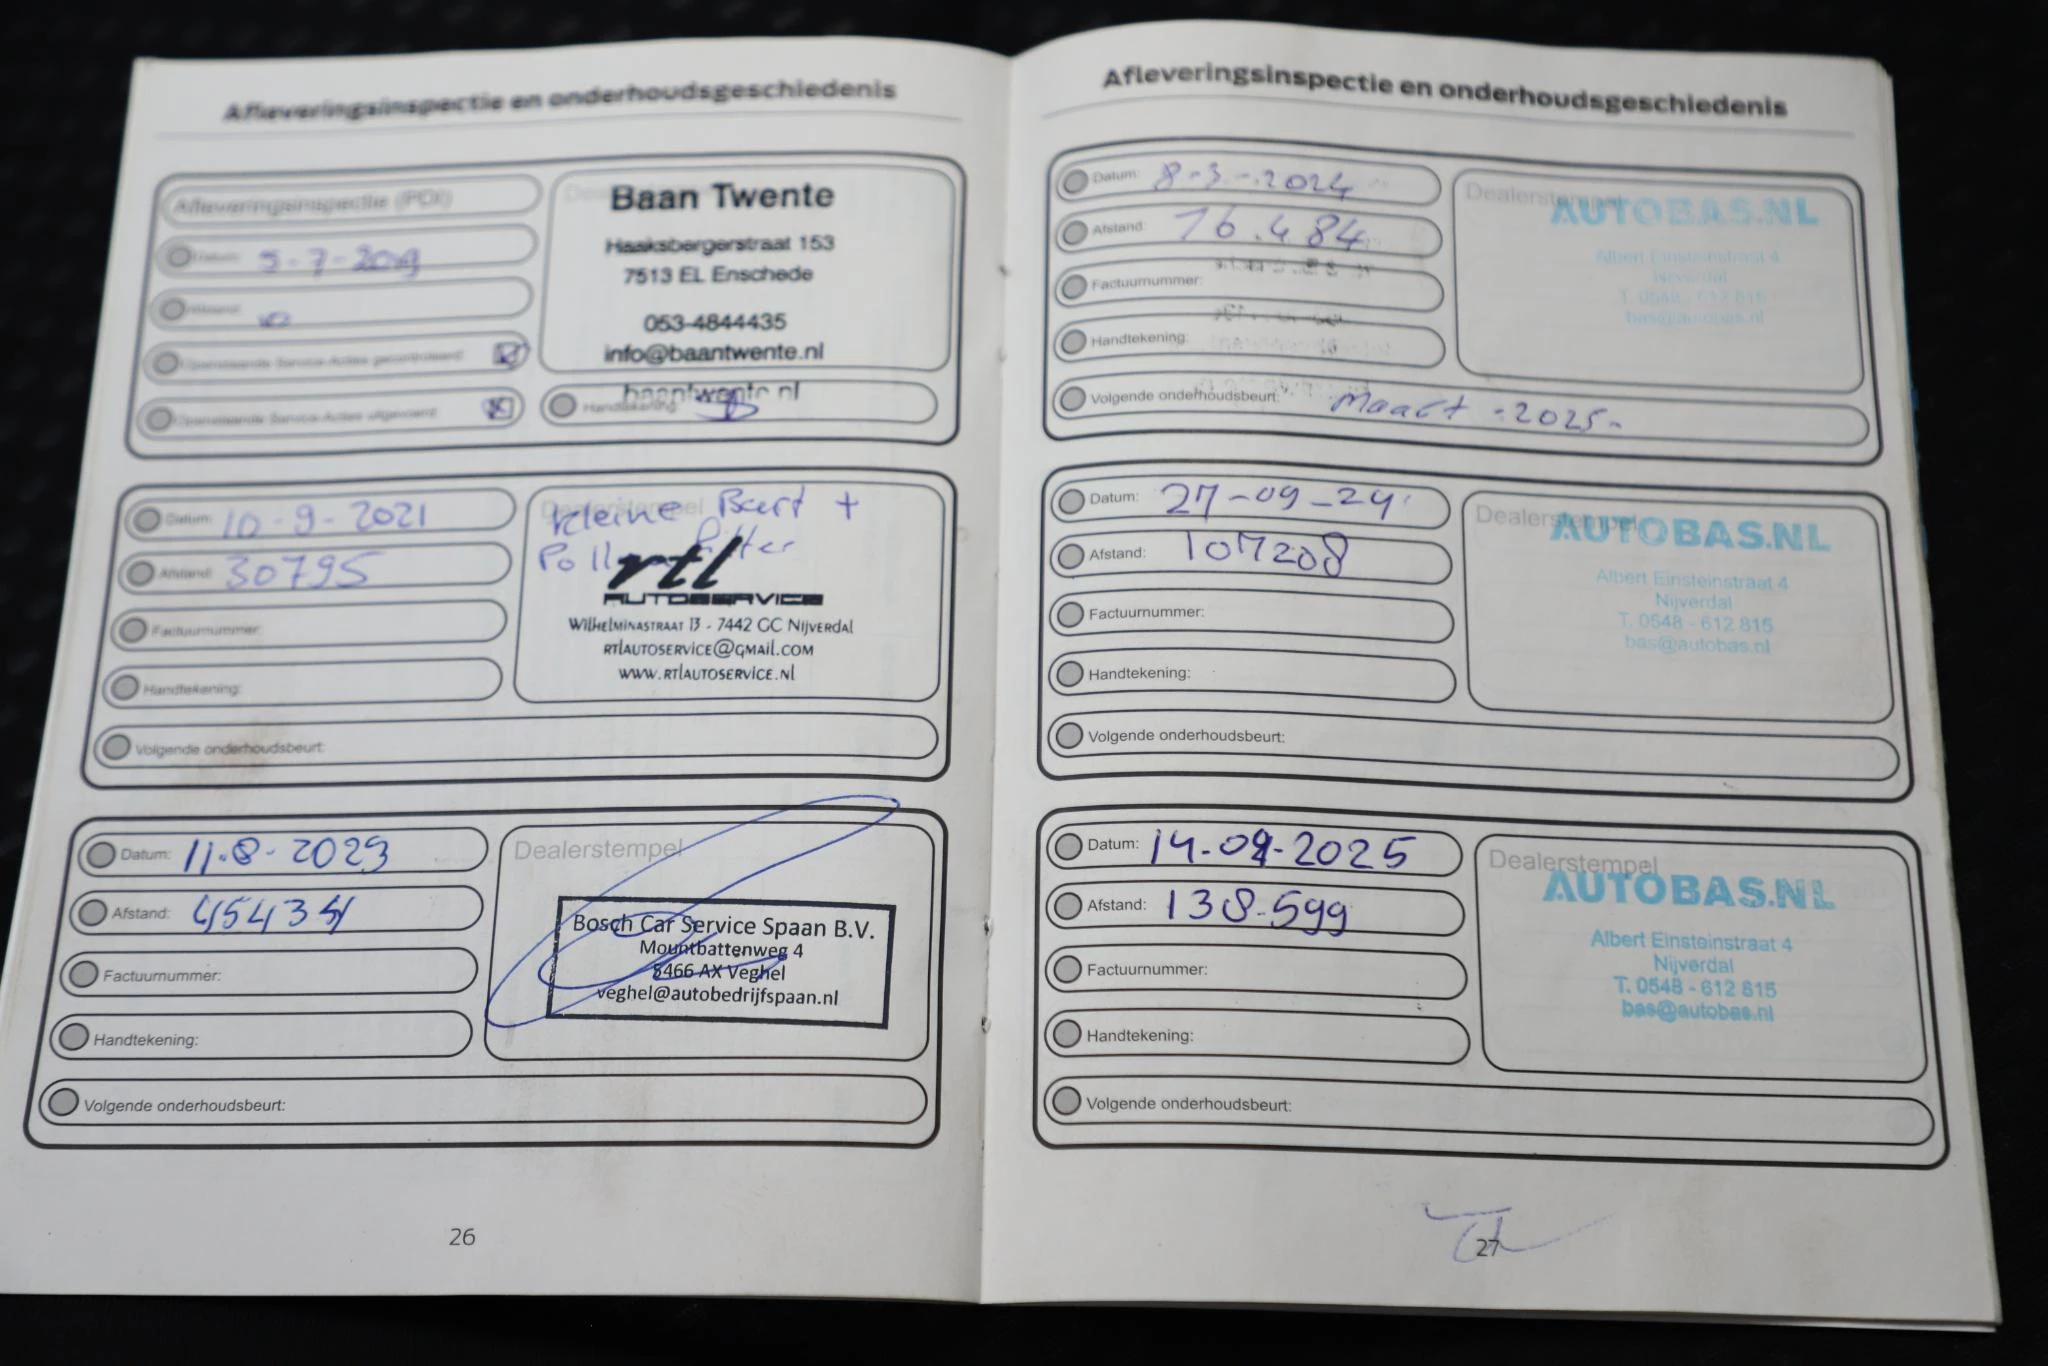 Afleveringsinspectie en onderhoudsgeschiedenis
Afleveringsinspectie (PDI)
Datum: 5-7-2019
Afstand:
Openstaande Service-Acties gecontroleerd:
Openstaande Service-Acties uitgevoerd:
Baan Twente
Haaksbergerstraat 153
7513 EL Enschede
053-4844435
info@baantwente.nl
baantwente.nl
Handtekening:
Datum: 10-9-2021
Afstand: 30795
Factuurnummer:
Handtekening:
Volgende onderhoudsbeurt:
Dealerstempel
Kleine Beurt +
rtl
AUTOSERVICE
Wilhelminastraat 13 - 7442 GC Nijverdal
rtlautoservice@gmail.com
www.rtlautoservice.nl
Datum: 11-8-2023
Afstand:
Factuurnummer:
Handtekening:
Volgende onderhoudsbeurt:
Dealerstempel
Bosch Car Service Spaan B.V.
Mountbattenweg 4
5466 AX Veghel
veghel@autobedrijfspaan.nl
26
Afleveringsinspectie en onderhoudsgeschiedenis
Datum: 8-3-2024
Afstand: 76.484
Factuurnummer:
Handtekening:
Volgende onderhoudsbeurt: Maart -2025-
Dealerstempel
AUTOBAS.NL
Albert Einsteinstraat 4
Nijverdal
T. 0548 - 612 815
bas@autobas.nl
Datum: 27-09-24
Afstand: 107208
Factuurnummer:
Handtekening:
Volgende onderhoudsbeurt:
Dealerstempel
AUTOBAS.NL
Albert Einsteinstraat 4
Nijverdal
T. 0548 - 612 815
bas@autobas.nl
Datum: 14-04-2025
Afstand: 138.599
Factuurnummer:
Handtekening:
Volgende onderhoudsbeurt:
Dealerstempel
AUTOBAS.NL
Albert Einsteinstraat 4
Nijverdal
T. 0548 - 612 815
bas@autobas.nl
27